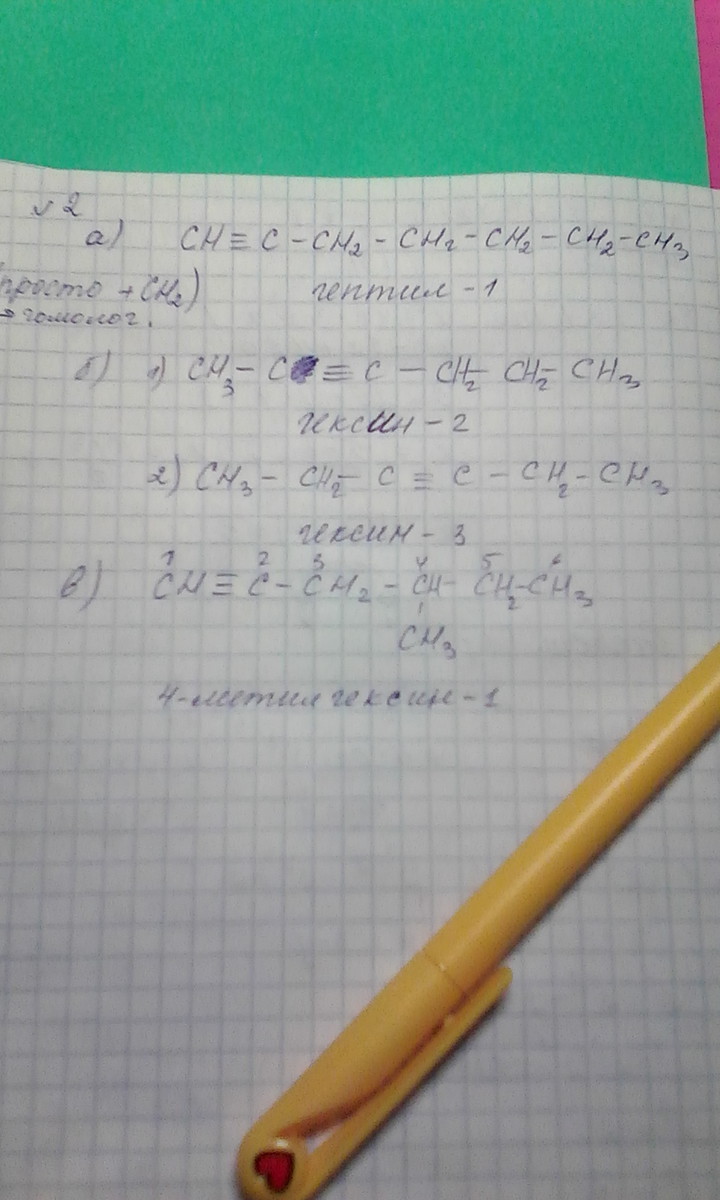 №2
а) CH≡C-CH₂-CH₂-CH₂-CH₂-CH₃
(просто +CH₂) гептил-1
→гомолог.
б) 1) CH₃-C≡C-CH₂-CH₂-CH₃
гексин-2
2) CH₃-CH₂-C≡C-CH₂-CH₃
гексин-3
1 2 3 4 5 6
в) CH≡C-CH₂-CH-CH₂-CH₃
CH₃
4-метилгексин-1